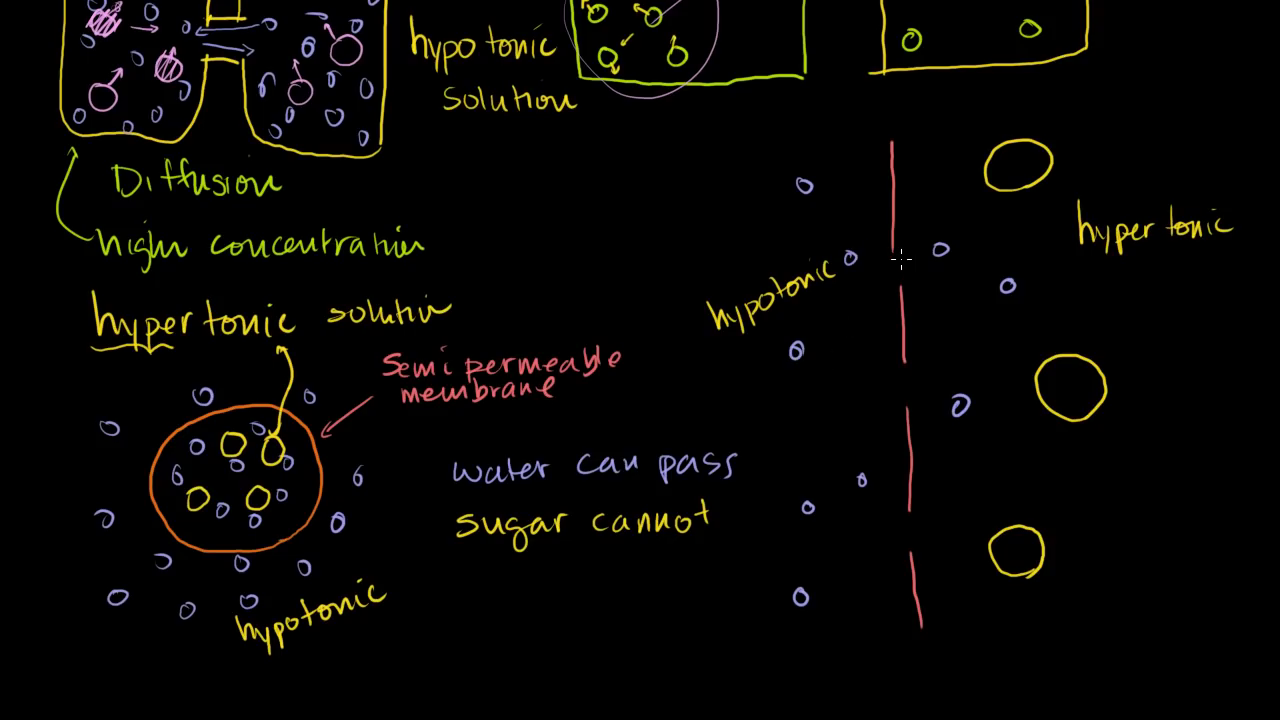 hypotonic
solution
Diffusion
high concentration
hypertonic solution
Semipermeable
membrane
water can pass
sugar cannot
hypotonic
hypotonic
hypertonic